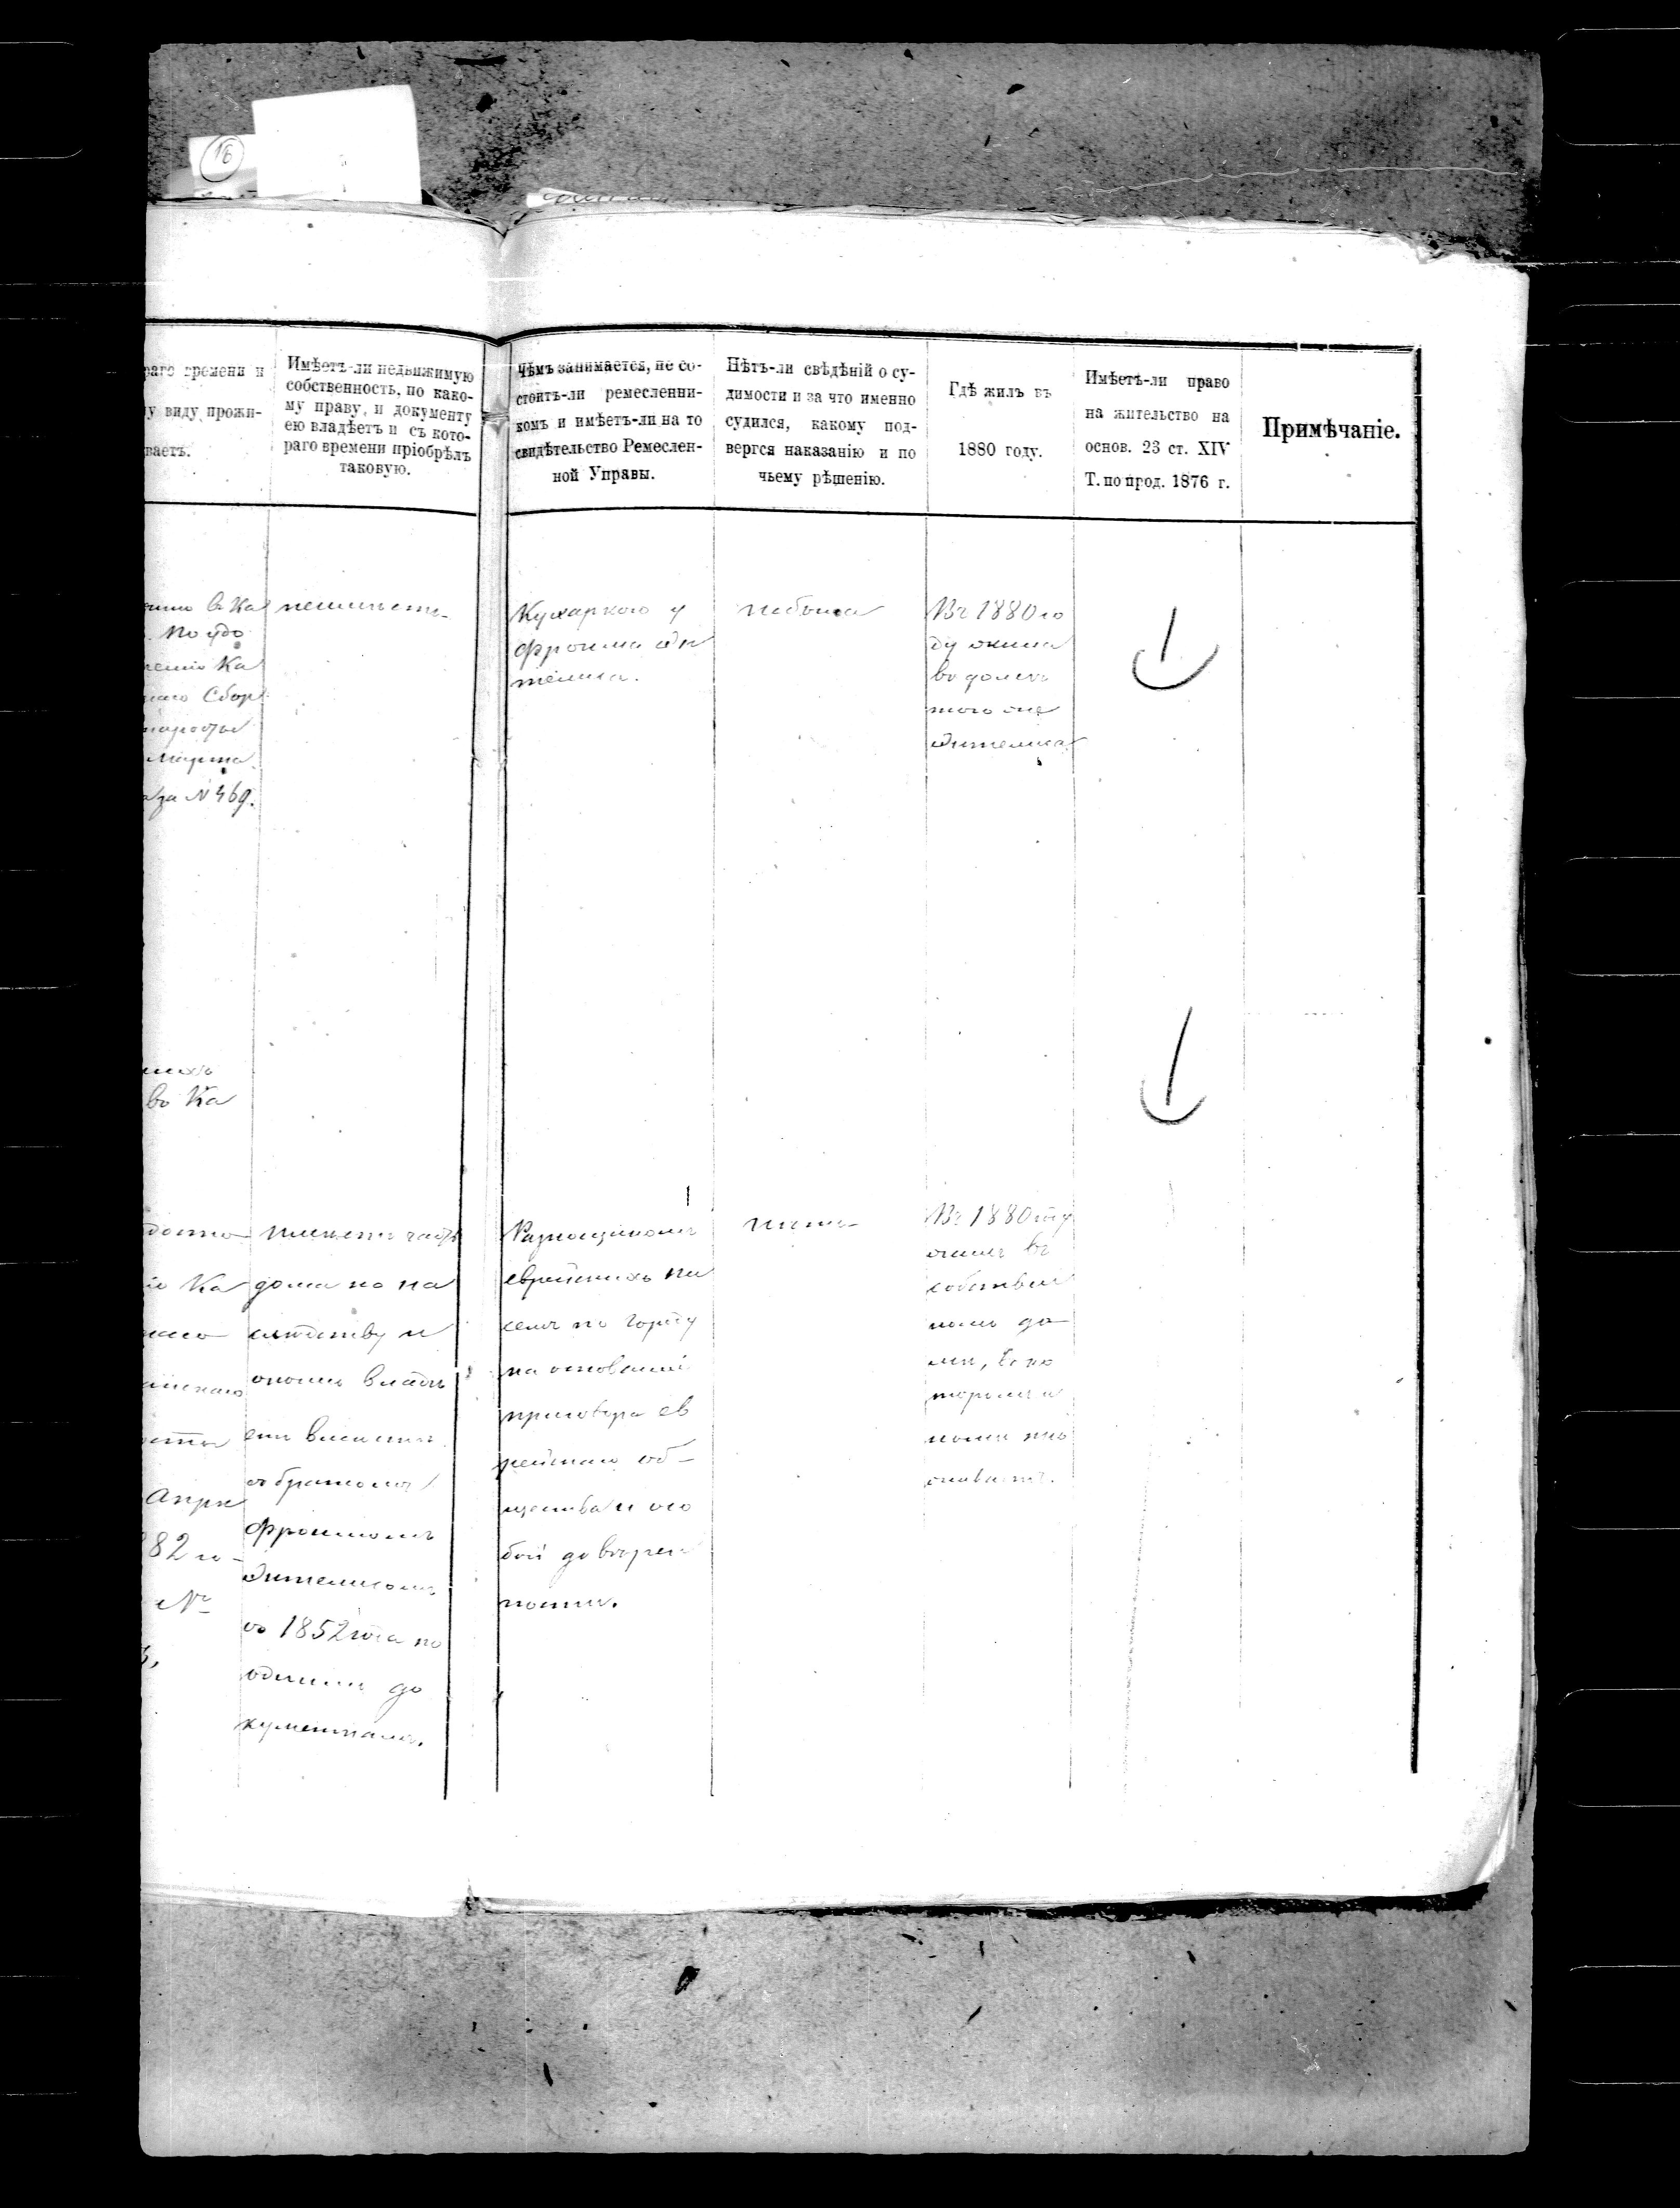 16
раго времени и
у виду прожи-
ваетъ.
Имѣетъ-ли недвижимую
собственность, по како-
му праву, и документу
ею владѣетъ и съ кото-
раго времени пріобрѣлъ
таковую.
Чѣмъ занимается, не со-
стоитъ-ли ремесленни-
комъ и имѣетъ-ли на то
свидѣтельство Ремеслен-
ной Управы.
Нѣтъ-ли свѣдѣній о су-
димости и за что именно
судился, какому под-
вергся наказанію и по
чьему рѣшенію.
Гдѣ жилъ въ
1880 году.
Имѣетъ-ли право
на жительство на
основ. 23 ст. XIV
Т. по прод. 1876 г.
Примѣчаніе.
в Ка
По удо
Ка
Сбор
Марта
за № 469.
неимѣетъ
Кухаркою у
Фроима Эн
телиса.
небыла
Въ 1880 го
ду жила
въ домѣ
того же
Энтелиса
во Ка
Ка
Апрѣ
82 го
№
имѣетъ часть
дома по на
слѣдству и
оною владѣ
етъ вмѣстѣ
съ братомъ
Фроимомъ
Энтелисомъ
съ 1852 года по
однимъ до
кументамъ.
Разнощикомъ
еврейскихъ пи
семъ по городу
на основаніи
приговора ев
рейскаго об-
щества и осо
бой довѣрен
ности.
нѣтъ
Въ 1880 году
жилъ въ
собствен
номъ до
мѣ, въ ко
торомъ и
нынѣ про
живаетъ.